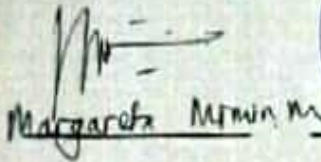 Margareta Mimin. M